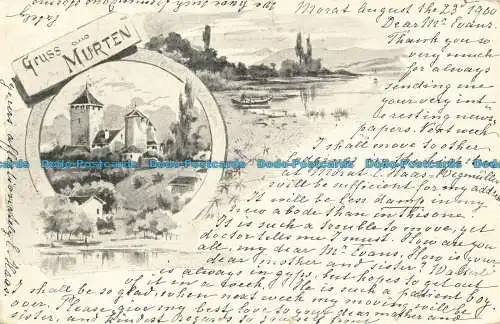 Gruss aus
Murten
Morat August the 23d 1900
Dear Mr Evans.
Thank you so
very much
for always
sending me
your very in
teresting news
papers. Next week
I shall move to other
will be sufficient for my address
It will be less damp in my
new abode than in this one
It is such a trouble to move, yet
doctor tells me I must. How are you
all, my dear Mr Evans. How is your
dear mother and sister?
is always in gyps, but hopes to get out
of it in a week. He is such a patient boy
I shall be so glad, when next week my moving will be
over. Please, give my best love to your dear mother and
sister, and kindest regards to
yours affectionately E. Haas.
Bodo-Postcards Bodo-Postcards Bodo-Postcards Bodo-Postcards